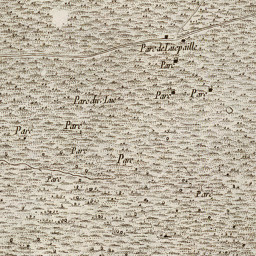 Parc de Lacpaille
Parc
Parc du Luc
Parc
Parc
Parc
Parc
Parc
Parc
Parc
Parc